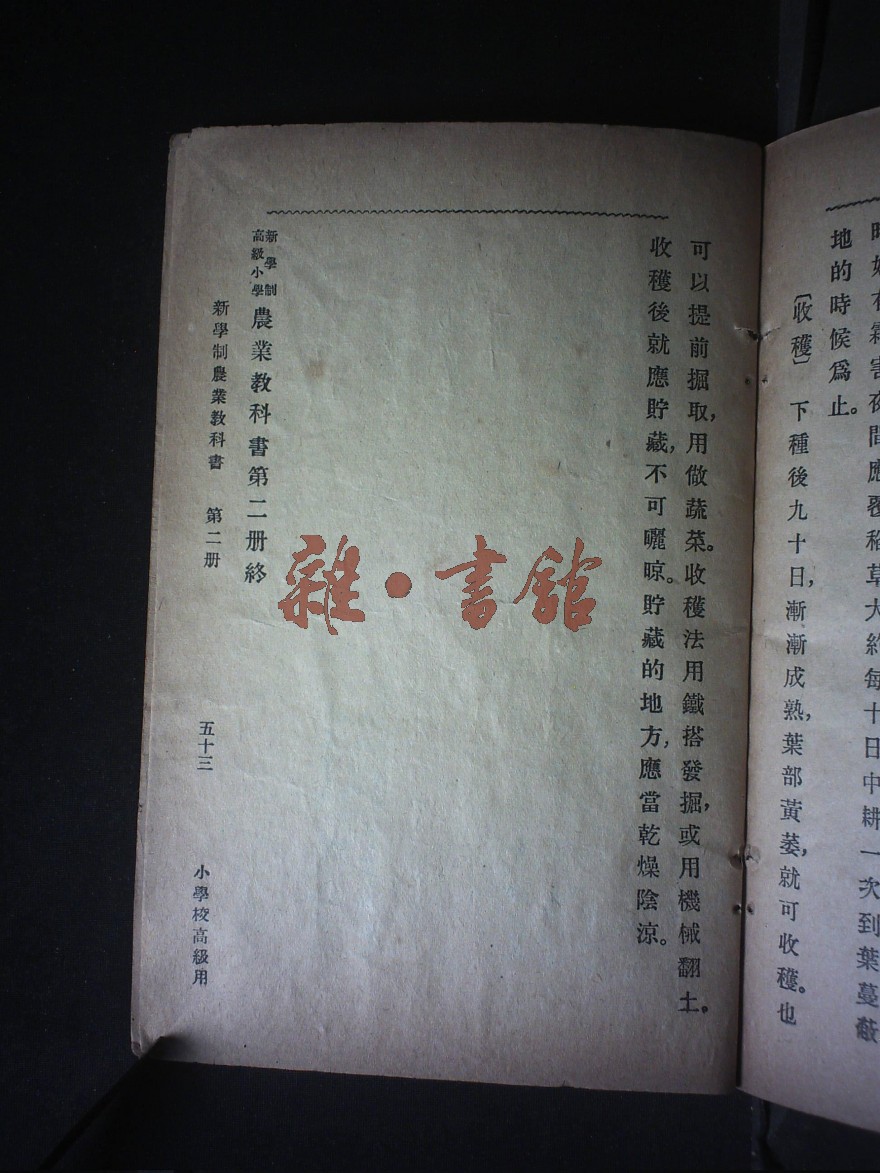 時如有霜害夜間應覆稻草大約每十日中耕一次到葉蔓蔽
地的時候爲止。
〔收穫〕 下種後九十日,漸漸成熟,葉部黃萎,就可收穫。也
可以提前掘取,用做蔬菜。收穫法用鐵搭發掘,或用機械翻土。
收穫後就應貯藏,不可曬晾。貯藏的地方,應當乾燥陰涼。
新學制
高級小學
農業教科書第二册終
新學制農業教科書 第二册
五十三
小學校高級用
雜·書館